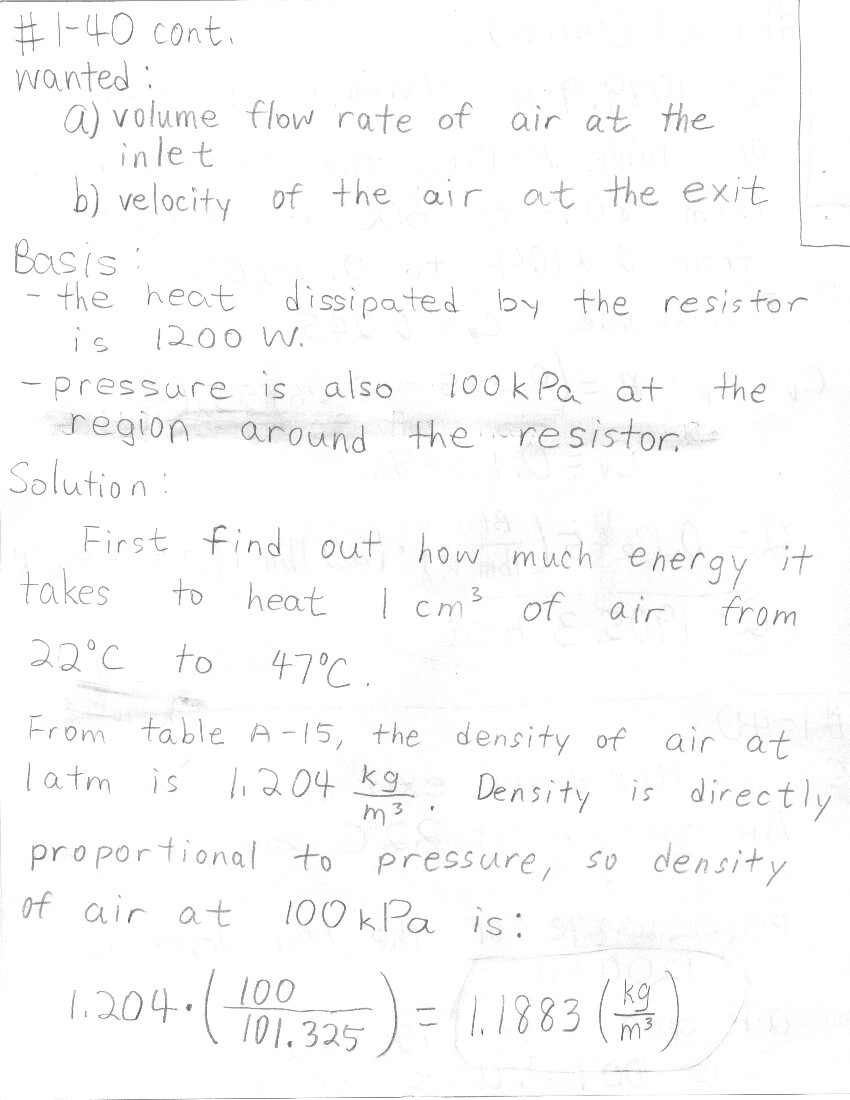 #1-40 cont.
wanted:
a) volume flow rate of air at the
inlet
b) velocity of the air at the exit
Basis:
- the heat dissipated by the resistor
is 1200 W.
- pressure is also 100 kPa at the
region around the resistor.
Solution:
First find out how much energy it
takes to heat 1 cm³ of air from
22°C to 47°C.
From table A-15, the density of air at
1 atm is 1.204 kg/m³. Density is directly
proportional to pressure, so density
of air at 100 kPa is:
1.204 · (100/101.325) = 1.1883 (kg/m³)